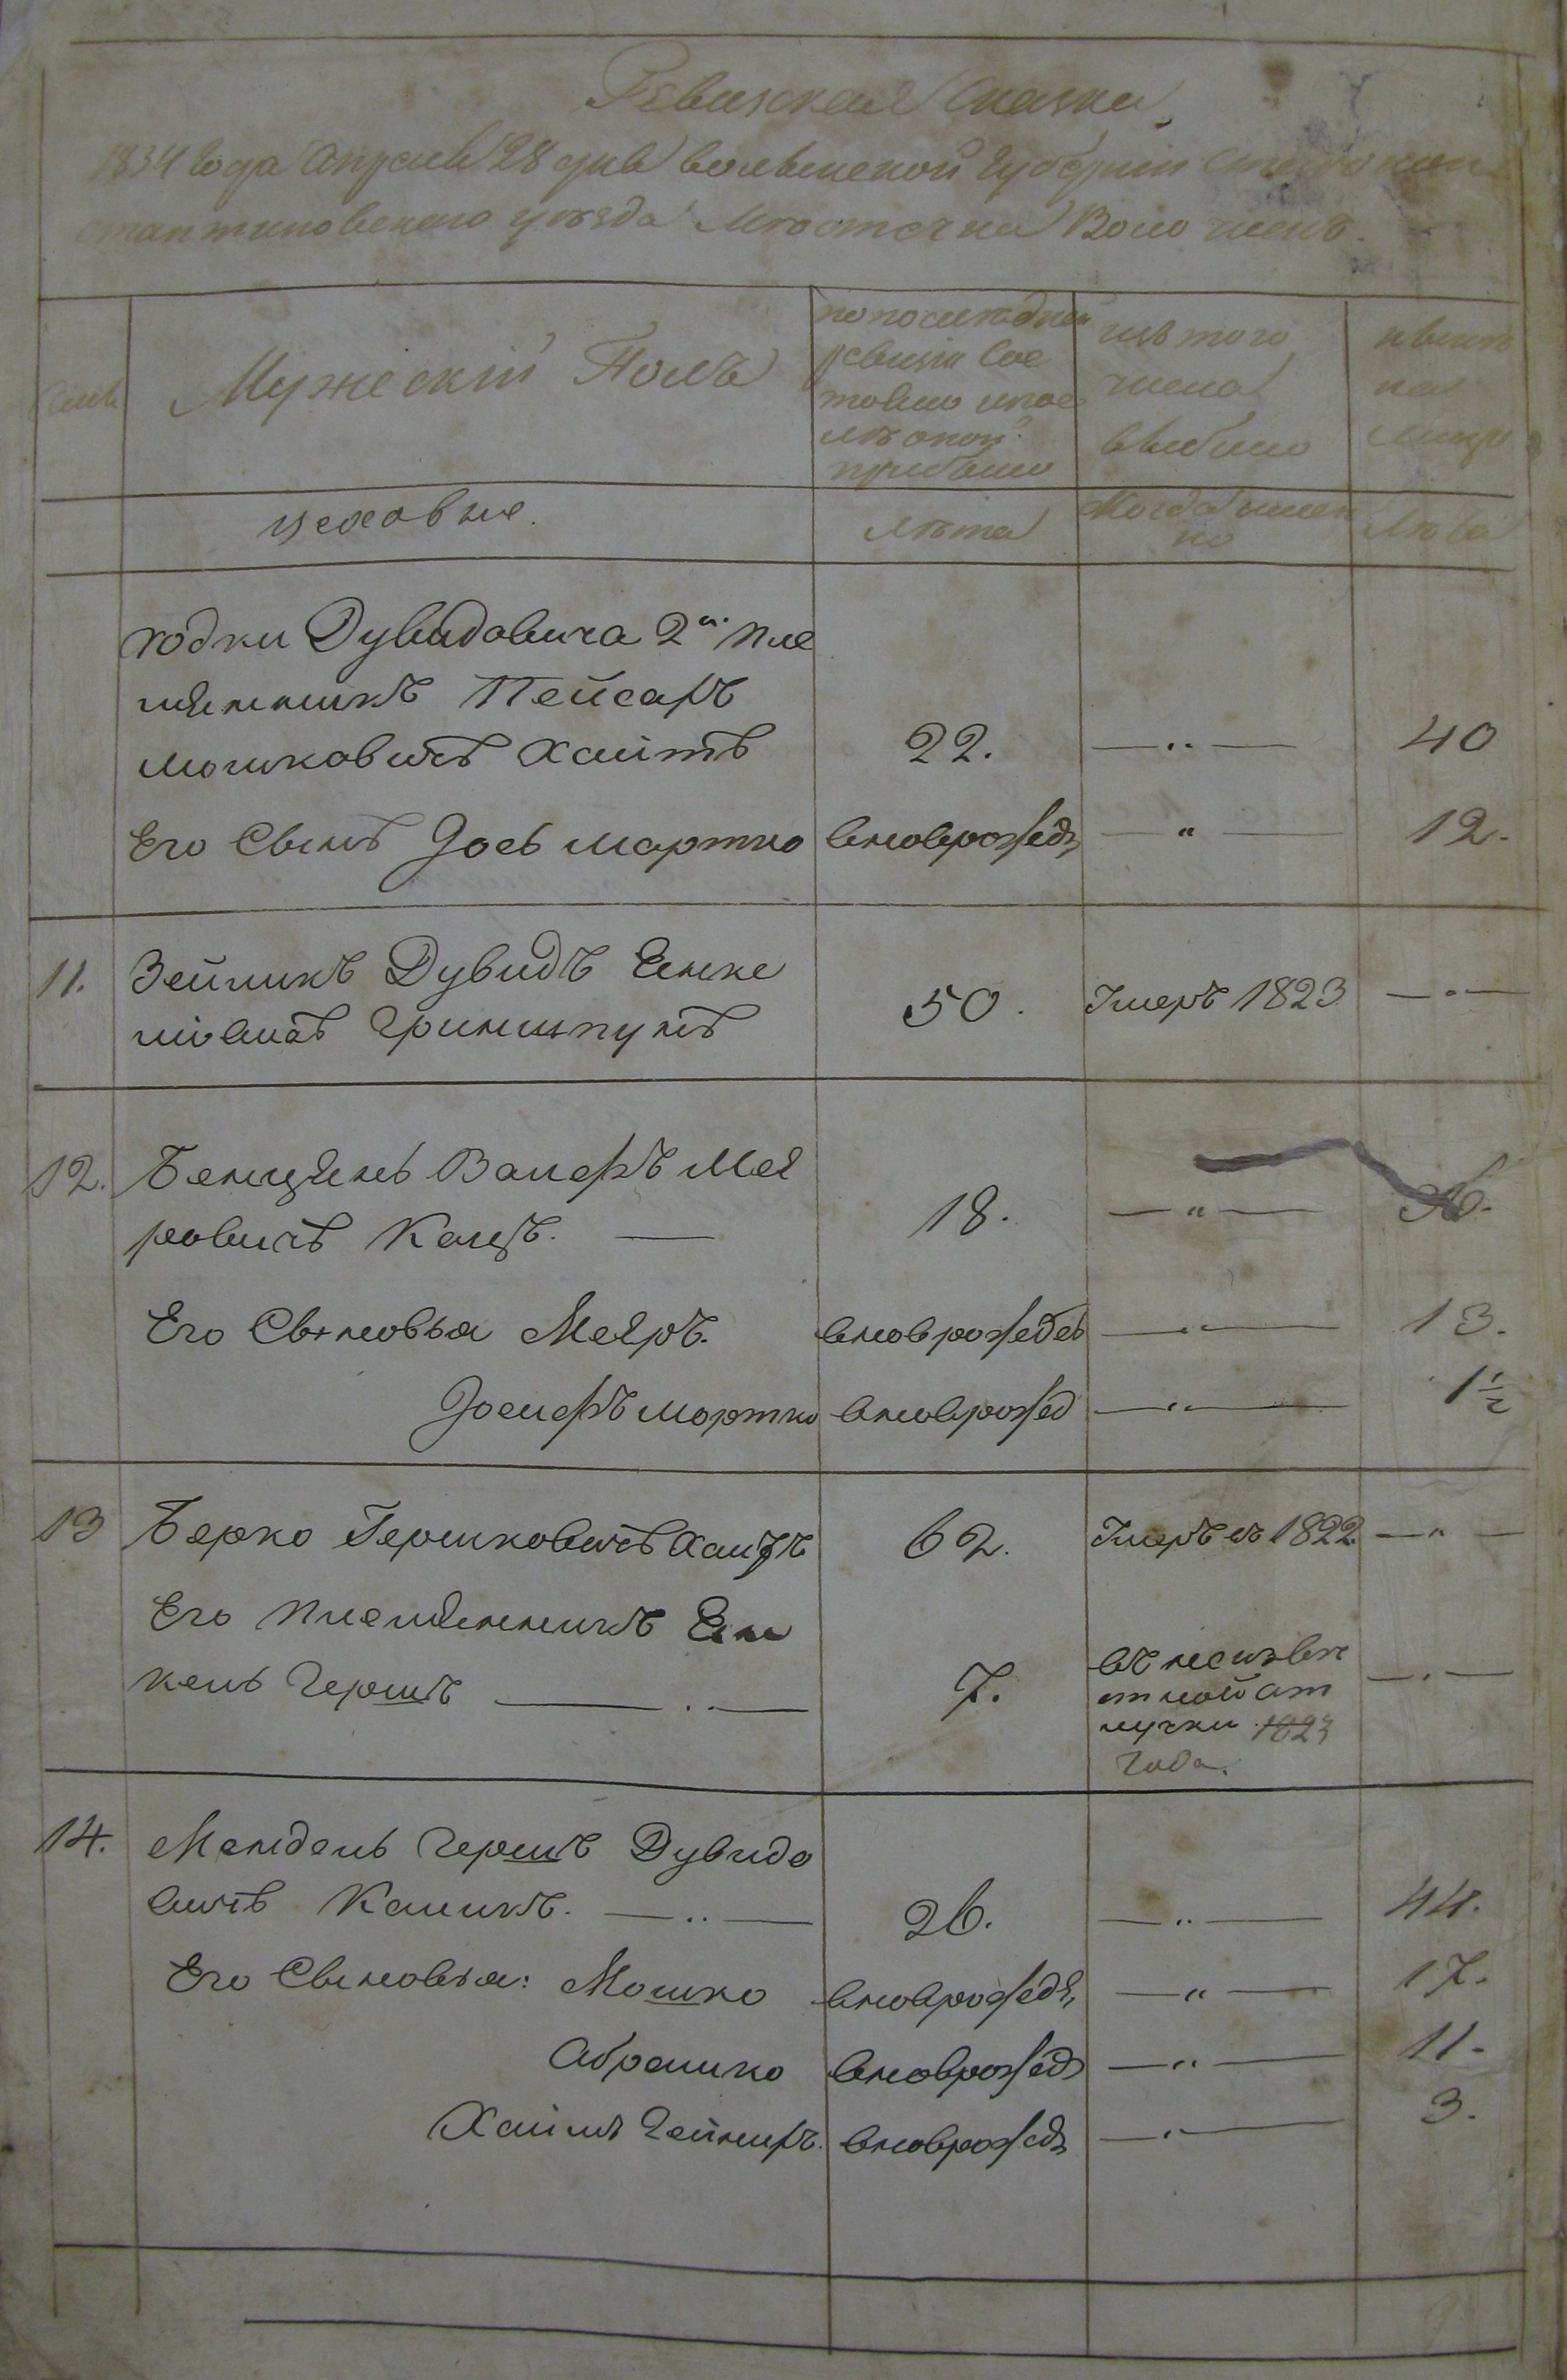 Ревизская Сказка
1834 года Апреля 28 дня волынской губернии Старокон
стантиновского уѣзда Мѣстечка Волочиска
Мужескій Полъ
по последней
ревизіи сос
тояло и пос
лѣ оной
прибыло
изъ того
числа
выбыло
нынѣ
на
лицо
цеховые.
лѣта
Когда имен
но
лѣта
Дувидовича 2й. пле
мянникъ Пейсахъ
мошковичъ Хаитъ 22. —..— 40
Его Сынъ Іось мартко вновьрожед —"— 12.
11. Зейликъ Дувидъ Енке
левичъ Гриншпунъ 50. Умеръ 1823 —"—
12. Бенцянъ Вольфъ Мее
ровичъ Кацъ. — 18. —"—
Его Сыновья Меяръ. вновьрожед —"— 13.
Іосифъ мортко вновьрожед —"— 1½
13 Берко Гершковичъ Хаитъ 62. Умеръ въ 1822 —"—
Его племянникъ Ен
кель Гершъ —.— 7.
въ неизвѣ
стной от
лучки 1823
года.
—.—
14. Мендель Гершъ Дувидо
вичъ Каликъ. —..— 26. —..— 44.
Его Сыновья: Мошко вновьрожед —"— 17.
Абрамко вновьрожед —"— 11.
Хаимъ Гейнихъ. вновьрожед —"— 3.